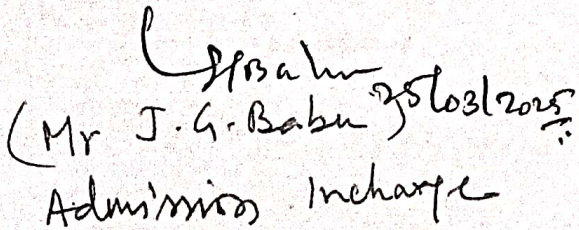 JGBabu
(Mr J.G.Babu) 25/03/2025
Admission Incharge